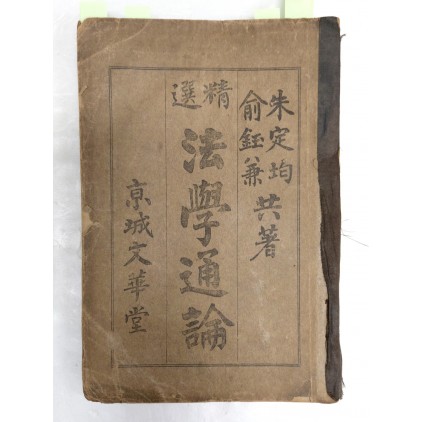 朱定均
俞鈺兼
共著
精選
法學通論
京城文華堂